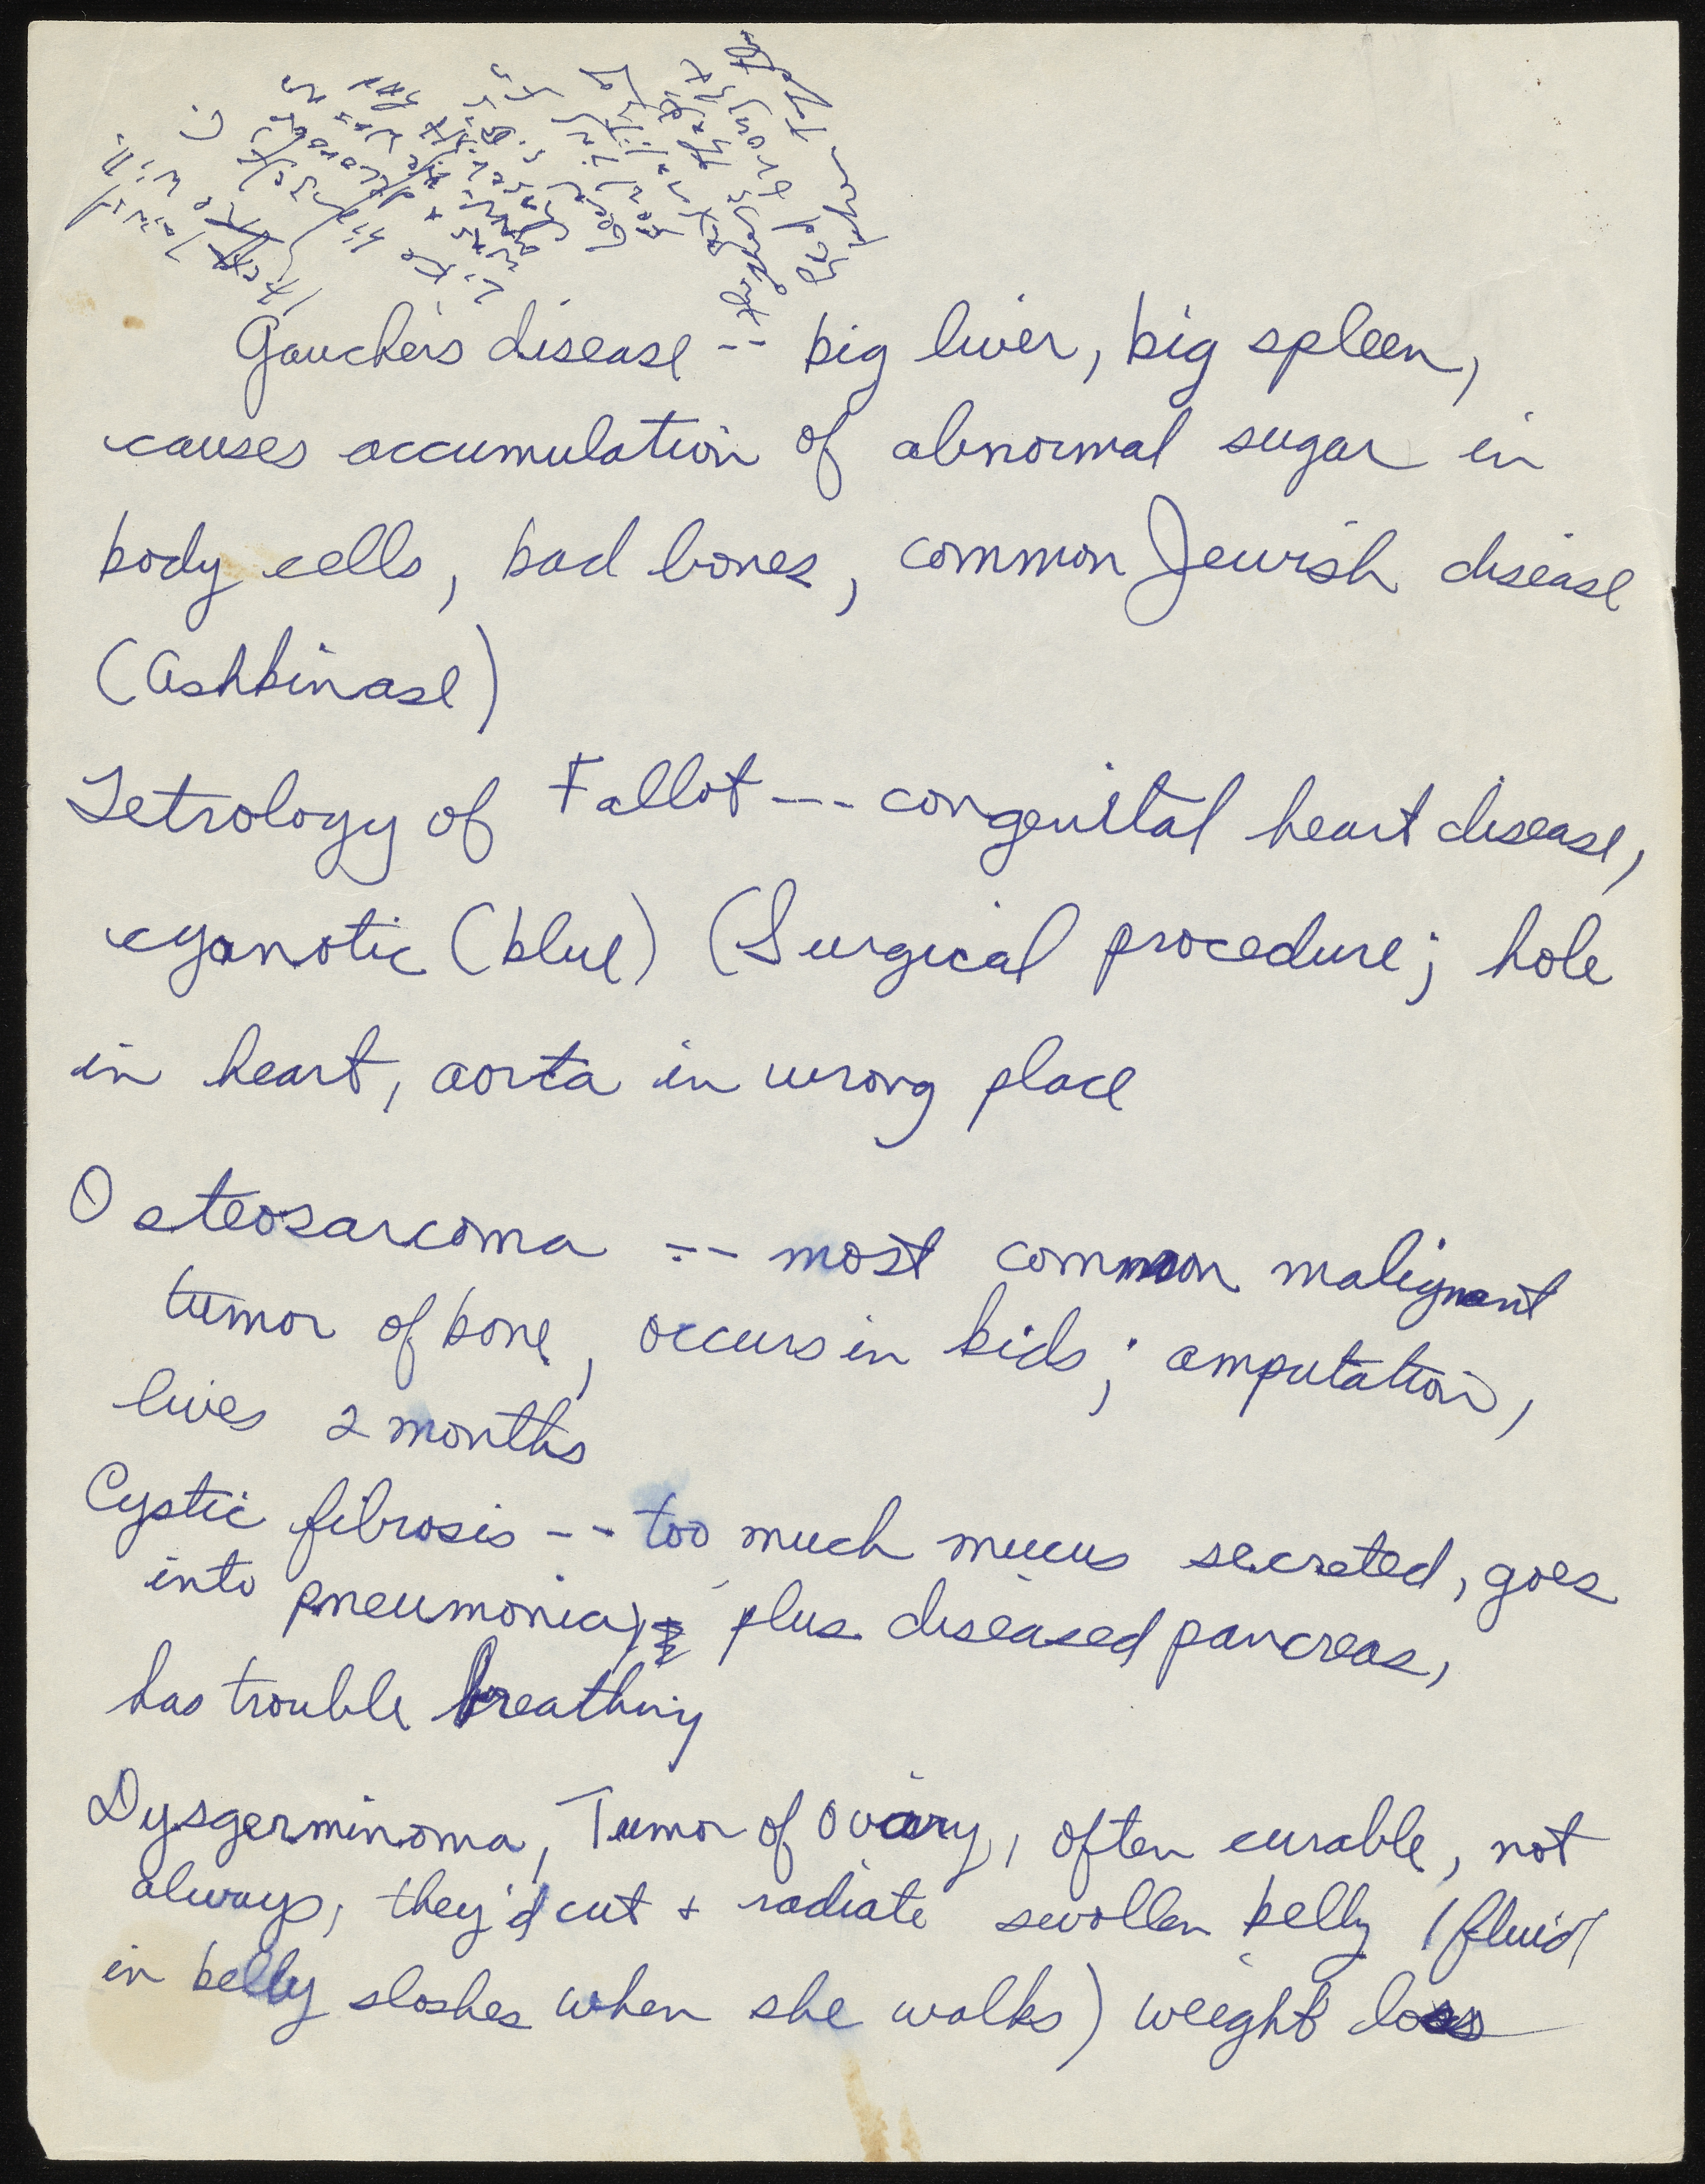 Gaucher's disease -- big liver, big spleen,
causes accumulation of abnormal sugar in
body cells, bad bones, common Jewish disease
(Ashkinase)
Tetrology of Fallot --- congenital heart disease,
cyanotic (blue) (Surgical procedure; hole
in heart, aorta in wrong place
Osteosarcoma -- most common malignant
tumor of bone, occurs in kids; amputation,
lives 2 months
Cystic fibrosis -- too much mucus secreted, goes
into pneumonia, plus diseased pancreas,
has trouble breathing
Dysgerminoma, Tumor of Ovary, often curable, not
always, they'd cut + radiate swollen belly (fluid
in belly sloshes when she walks) weight loss